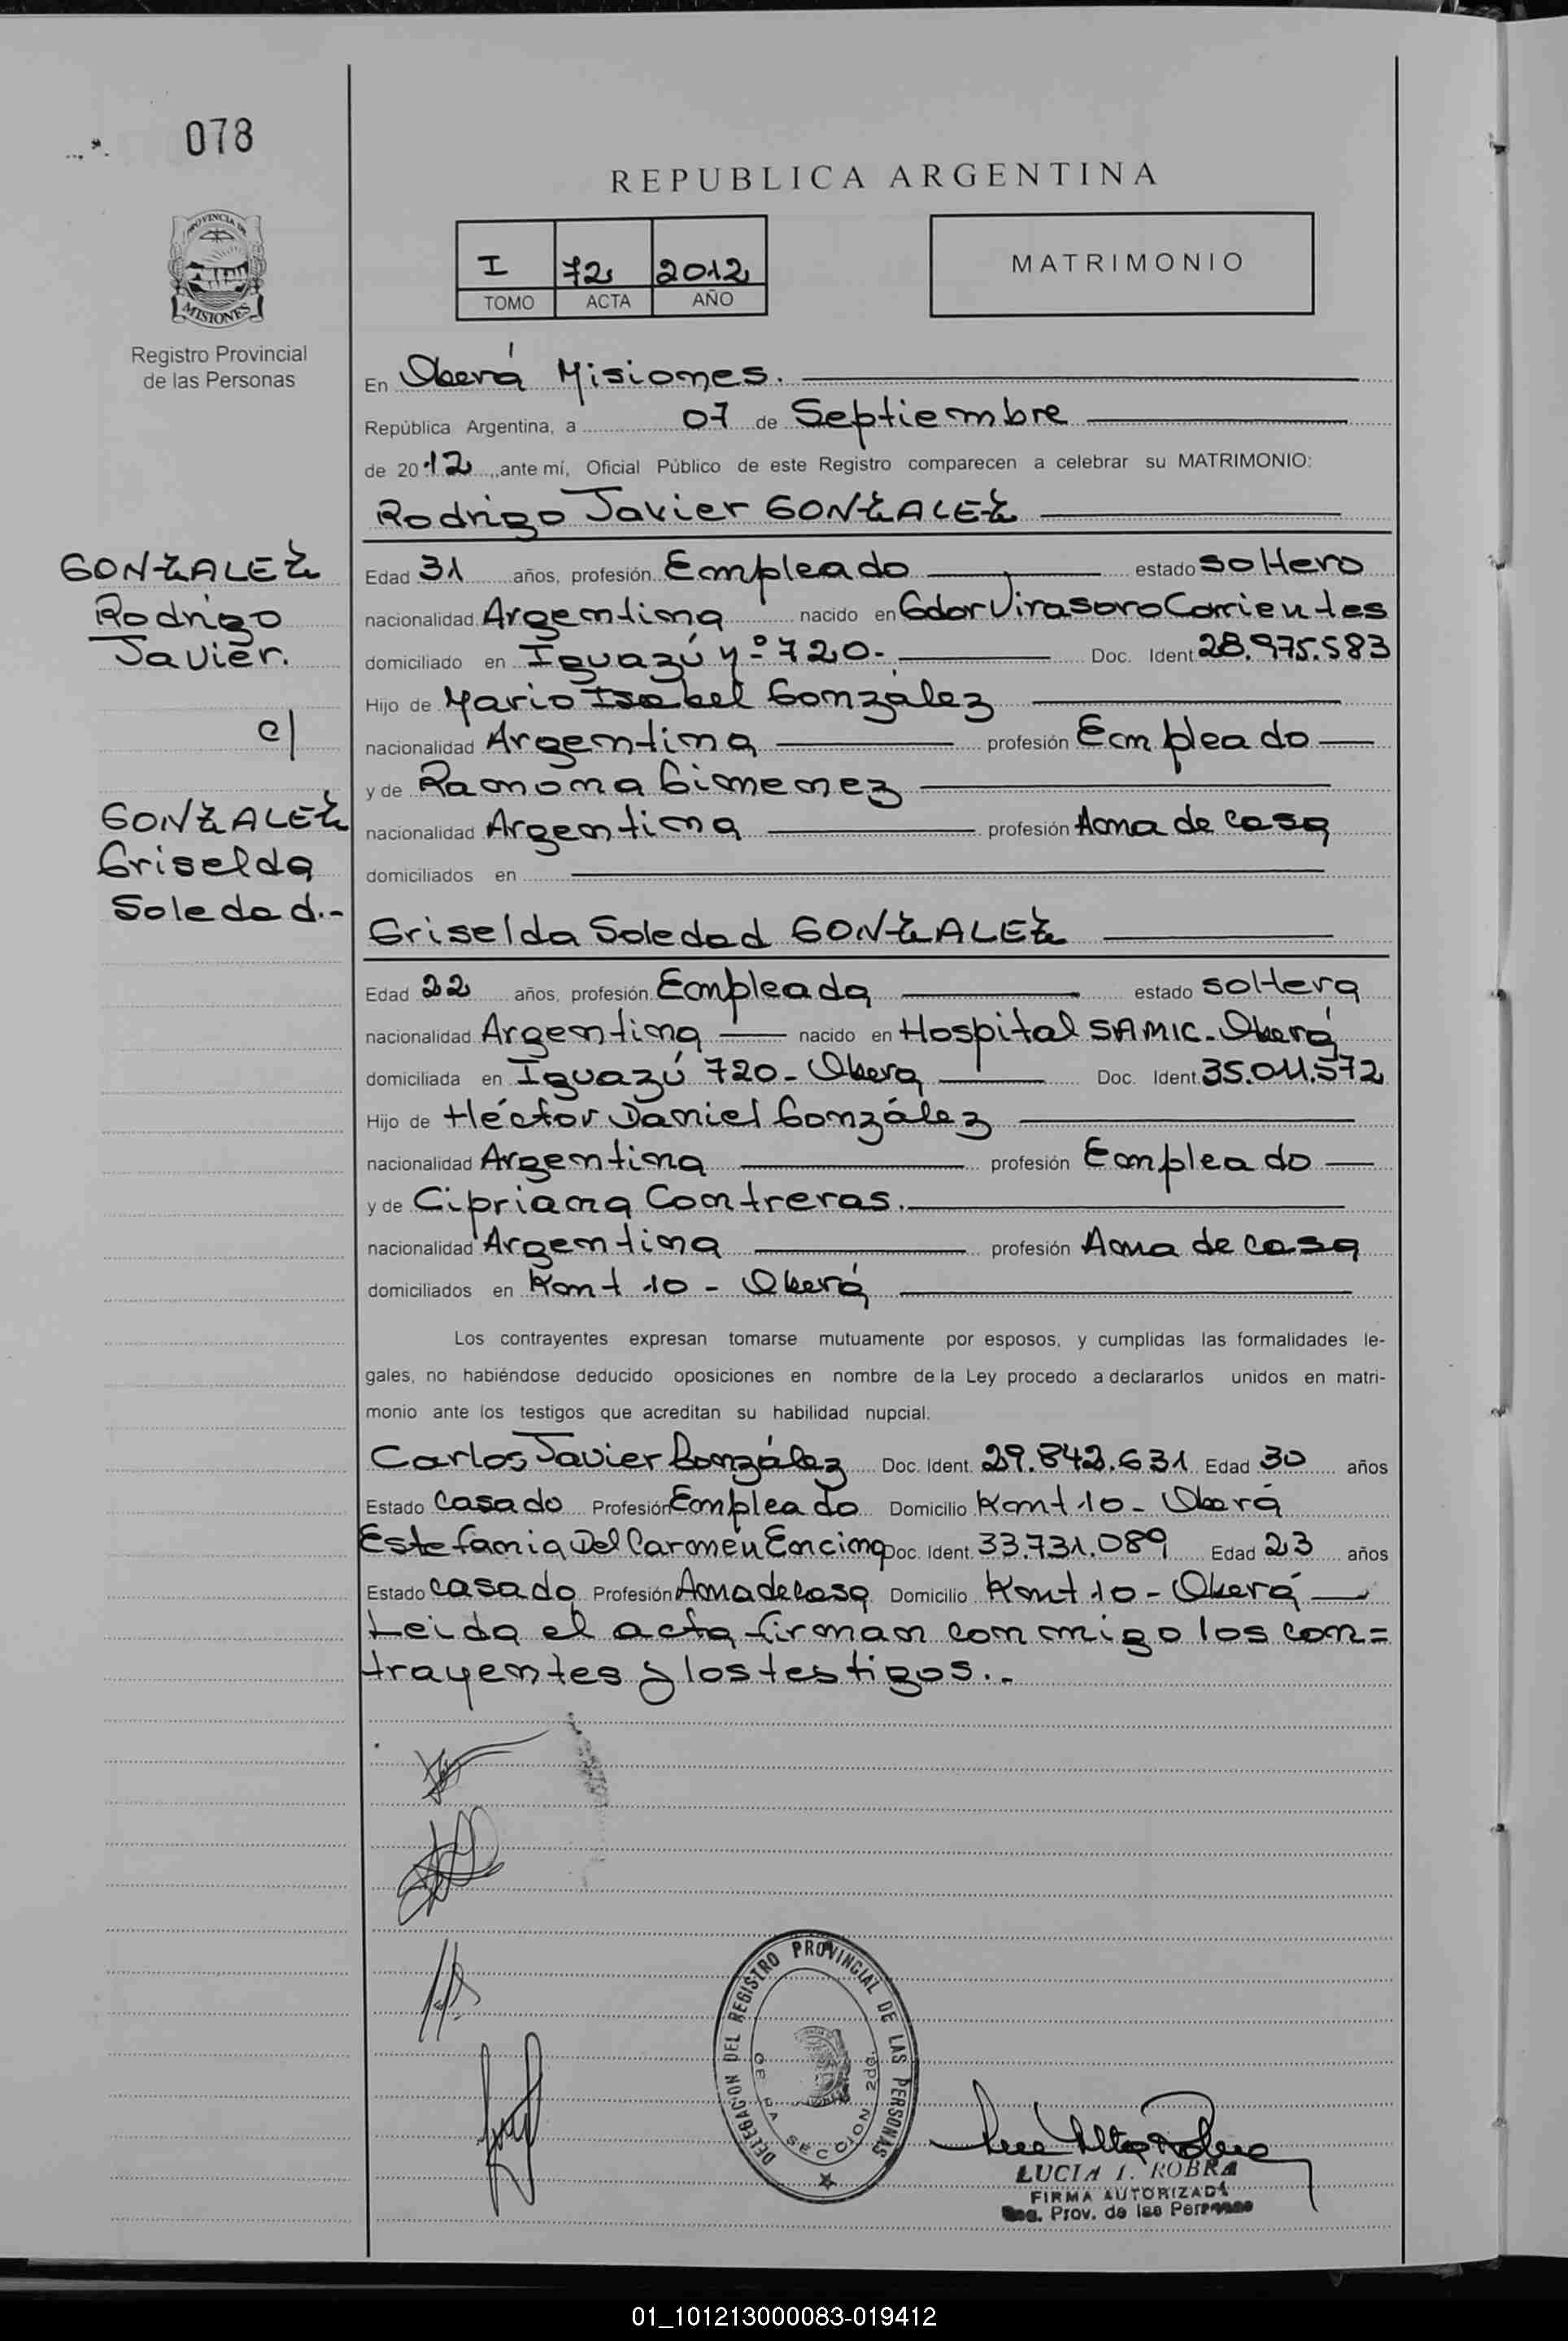 078
REPUBLICA ARGENTINA
PROVINCIA DE
MISIONES
Registro Provincial
de las Personas
I 72 2012
TOMO ACTA AÑO
MATRIMONIO
En Oberá Misiones.
República Argentina, a 07 de Septiembre
de 2012, ante mí, Oficial Público de este Registro comparecen a celebrar su MATRIMONIO:
Rodrigo Javier GONZALEZ
GONZALEZ
Rodrigo
Javier.
c/
GONZALEZ
Griselda
Soledad.-
Edad 31 años, profesión Empleado estado soltero
nacionalidad Argentina nacido en Gdor Virasoro Corrientes
domiciliado en Iguazú Nº 720- Doc. Ident. 28.975.583
Hijo de Mario Isabel González
nacionalidad Argentina profesión Empleado
y de Ramona Gimenez
nacionalidad Argentina profesión Ama de casa
domiciliados en
Griselda Soledad GONZALEZ
Edad 22 años, profesión Empleada estado soltera
nacionalidad Argentina nacido en Hospital SAMIC-Oberá
domiciliada en Iguazú 720- Obera Doc. Ident. 35.011.572
Hijo de Héctor Daniel González
nacionalidad Argentina profesión Empleado
y de Cipriana Contreras.
nacionalidad Argentina profesión Ama de casa
domiciliados en Kmt 10 - Oberá
Los contrayentes expresan tomarse mutuamente por esposos, y cumplidas las formalidades le-
gales, no habiéndose deducido oposiciones en nombre de la Ley procedo a declararlos unidos en matri-
monio ante los testigos que acreditan su habilidad nupcial.
Carlos Javier González Doc. Ident. 29.842.631 Edad 30 años
Estado casado Profesión Empleado Domicilio Kmt 10- Oberá
Estefania Del Carmen Encina Doc. Ident. 33.731.089 Edad 23 años
Estado casada Profesión Ama de casa Domicilio Kmt 10 - Oberá
Leida el acta firman con migo los con=
trayentes y los testigos..-
DELEGACION DEL REGISTRO PROVINCIAL DE LAS PERSONAS
SECCION
LUCIA I. ROBRA
FIRMA AUTORIZADA
Reg. Prov. de las Personas
01_101213000083-019412